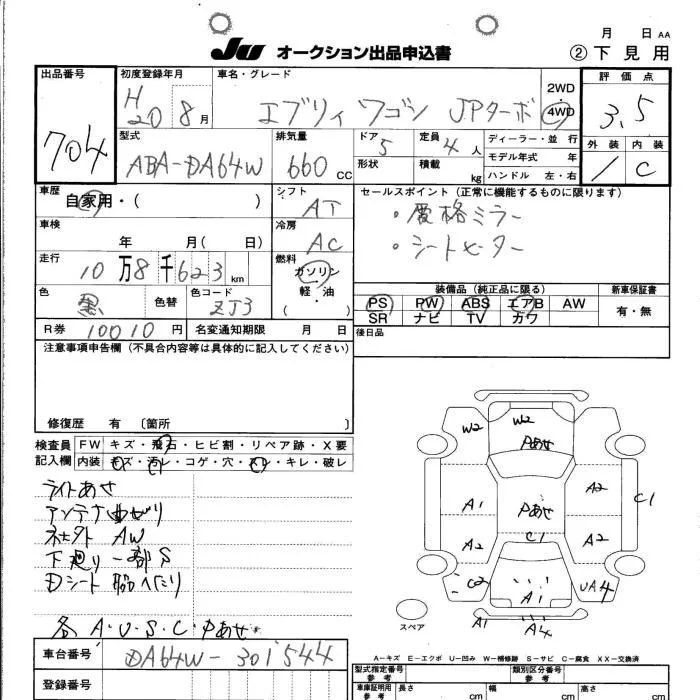 月 日 AA
JU オークション出品申込書
② 下見用
出品番号
704
初度登録年月
H20 8月
車名・グレード
エブリィ ワゴン JPターボ
2WD
4WD
評価点
3.5
外装 内装
/ C
型式
ABA-DA64W
排気量
660 CC
ドア
5
定員
4人
形状
積載
kg
ディーラー・並行
モデル年式 年
ハンドル 左・右
車歴
自家用・( )
シフト
AT
セールスポイント (正常に機能するものに限ります)
・シートヒーター
車検
年 月( 日)
冷房
AC
走行
10万8千623km
燃料
ガソリン
軽・油
( )
色
黒
色替
色コード
ZJ3
装備品 (純正品に限る)
PS PW ABS エアB AW
SR ナビ TV カワ
新車保証書
有・無
R券 10010円
名変通知期限 月 日
後日品
注意事項申告欄 (不具合内容等は具体的に記入してください)
修復歴 有 〔箇所 〕
検査員
記入欄
FW キズ・飛石・ヒビ割・リペア跡・X要
内装 キズ・汚レ・コゲ・穴・スレ・キレ・破レ
ライトあせ
アンテナ曲がり
社外 AW
下廻り一部S
Dシート 脇へたり
各 A・U・S・C・Pあせ
W2
W2
Pあせ
A1
Pあせ
A2
C1
A2
C1
A2
C2
A1
UA4
A1
A4
スペア
車台番号
DA64W-301544
登録番号
A−キズ E−エクボ U−凹み W−補修跡 S−サビ C−腐食 XX−交換済
型式指定番号
参考
類別区分番号
参考
車庫証明用
参考
長さ
cm
幅
cm
高さ
cm